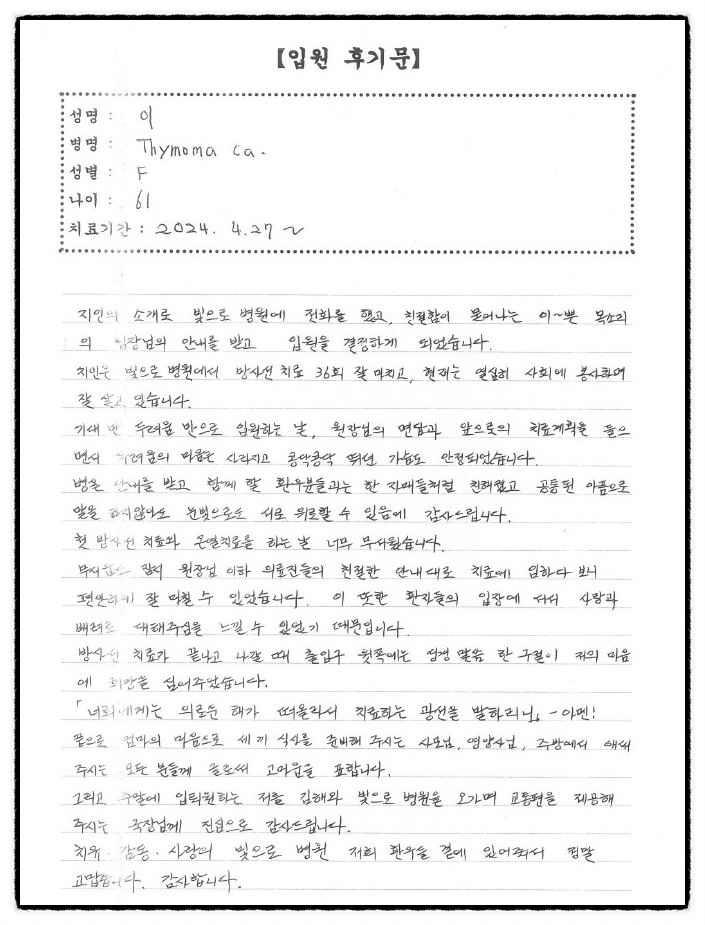 【입원 후기문】
성명 : 이
병명 : Thymoma ca.
성별 : F
나이 : 61
치료기간 : 2024. 4.27 ~
지인의 소개로 빛으로병원에 전화를 했고, 친절함이 묻어나는 이~쁜 목소리
의 팀장님의 안내를 받고 입원을 결정하게 되었습니다.
지인은 빛으로병원에서 방사선 치료 36회 잘 마치고, 현재는 열심히 사회에 봉사하며
잘 살고 있습니다.
기대 반 두려움 반으로 입원하는 날, 원장님의 면담과 앞으로의 치료계획을 들으
면서 두려움의 마음은 사라지고 콩닥콩닥 뛰던 가슴도 안정되었습니다.
병실 안내를 받고 함께 할 환우분들과는 한 자매들처럼 친해졌고 공통된 아픔으로
말을 하지않아도 눈빛으로도 서로 위로할 수 있음에 감사드립니다.
첫 방사선 치료와 온열치료를 하는 날 너무 무서웠습니다.
무서움도 잠시 원장님 이하 의료진들의 친절한 안내대로 치료에 임하다 보니
편안하게 잘 마칠 수 있었습니다. 이 또한 환자들의 입장에 서서 사랑과
배려로 대해주심을 느낄 수 있었기 때문입니다.
방사선 치료가 끝나고 나갈 때 출입구 윗쪽에는 성경 말씀 한 구절이 저의 마음
에 희망을 심어주었습니다.
「너희에게는 의로운 해가 떠올라서 치료하는 광선을 발하리니」 - 아멘!
끝으로 엄마의 마음으로 세 끼 식사를 준비해 주시는 사모님, 영양사님, 주방에서 애써
주시는 모든 분들께 글로써 고마움을 표합니다.
그리고 주말에 입퇴원하는 저를 김해와 빛으로병원을 오가며 교통편을 제공해
주시는 국장님께 진심으로 감사드립니다.
치유 · 감동 · 사랑의 빛으로 병원 저희 환우들 곁에 있어줘서 정말
고맙습니다. 감사합니다.